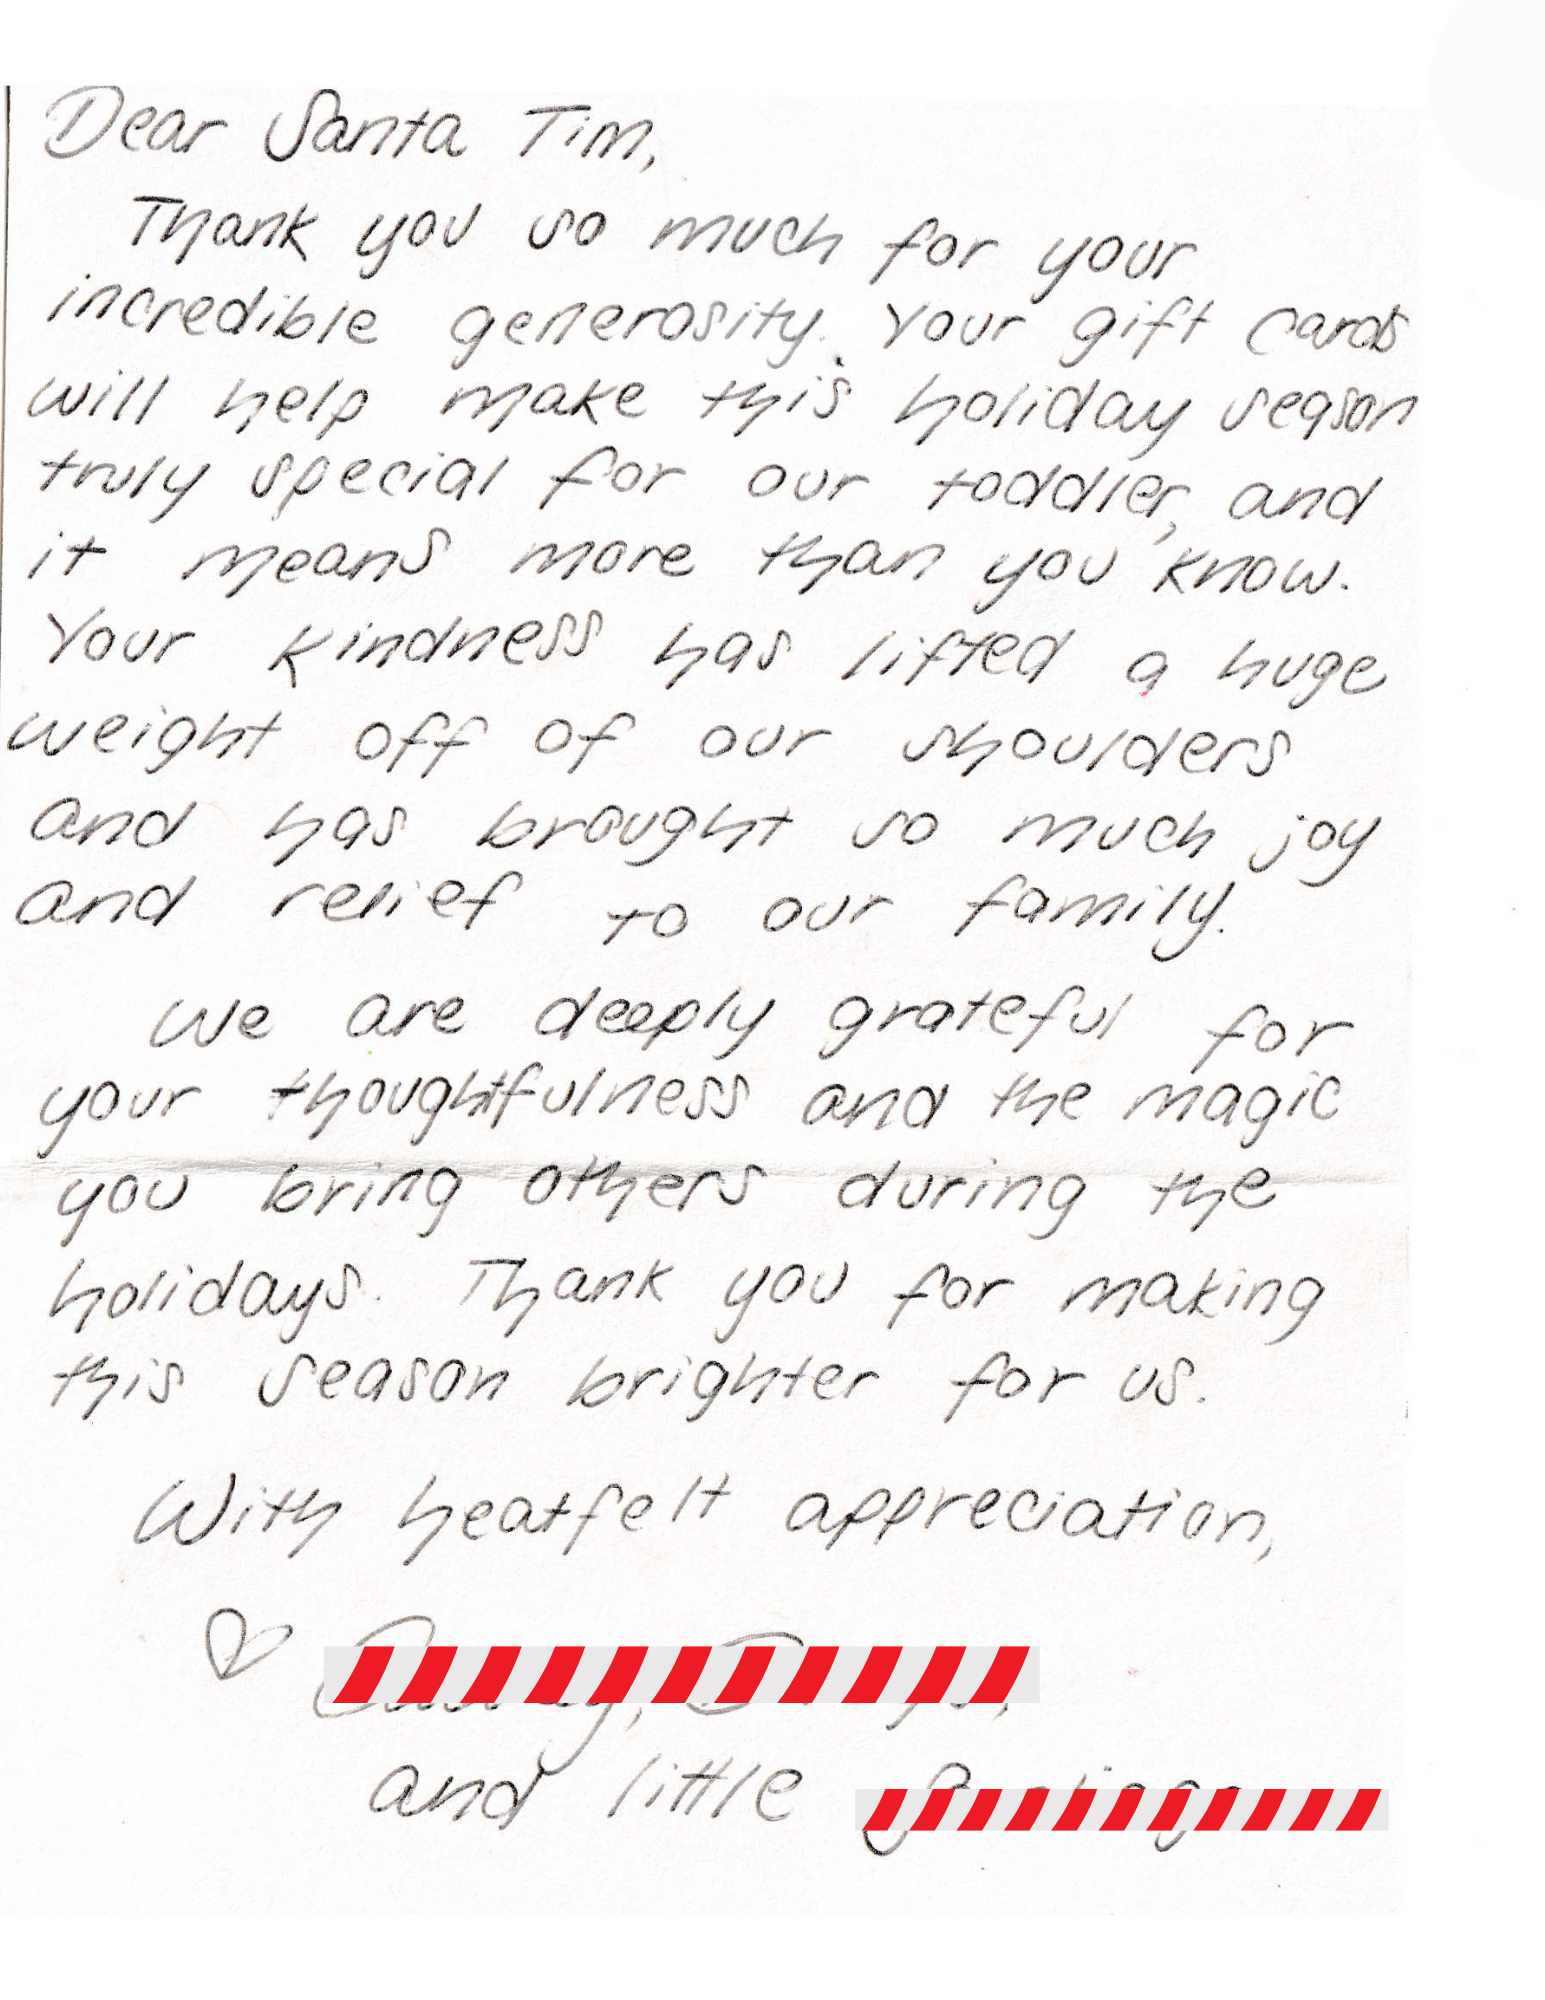 Dear Santa Tim,
Thank you so much for your
incredible generosity. Your gift cards
will help make this holiday season
truly special for our toddler, and
it means more than you know.
Your kindness has lifted a huge
weight off of our shoulders
and has brought so much joy
and relief to our family.
We are deeply grateful for
your thoughtfulness and the magic
you bring others during the
holidays. Thank you for making
this season brighter for us.
With heatfelt appreciation,
and little